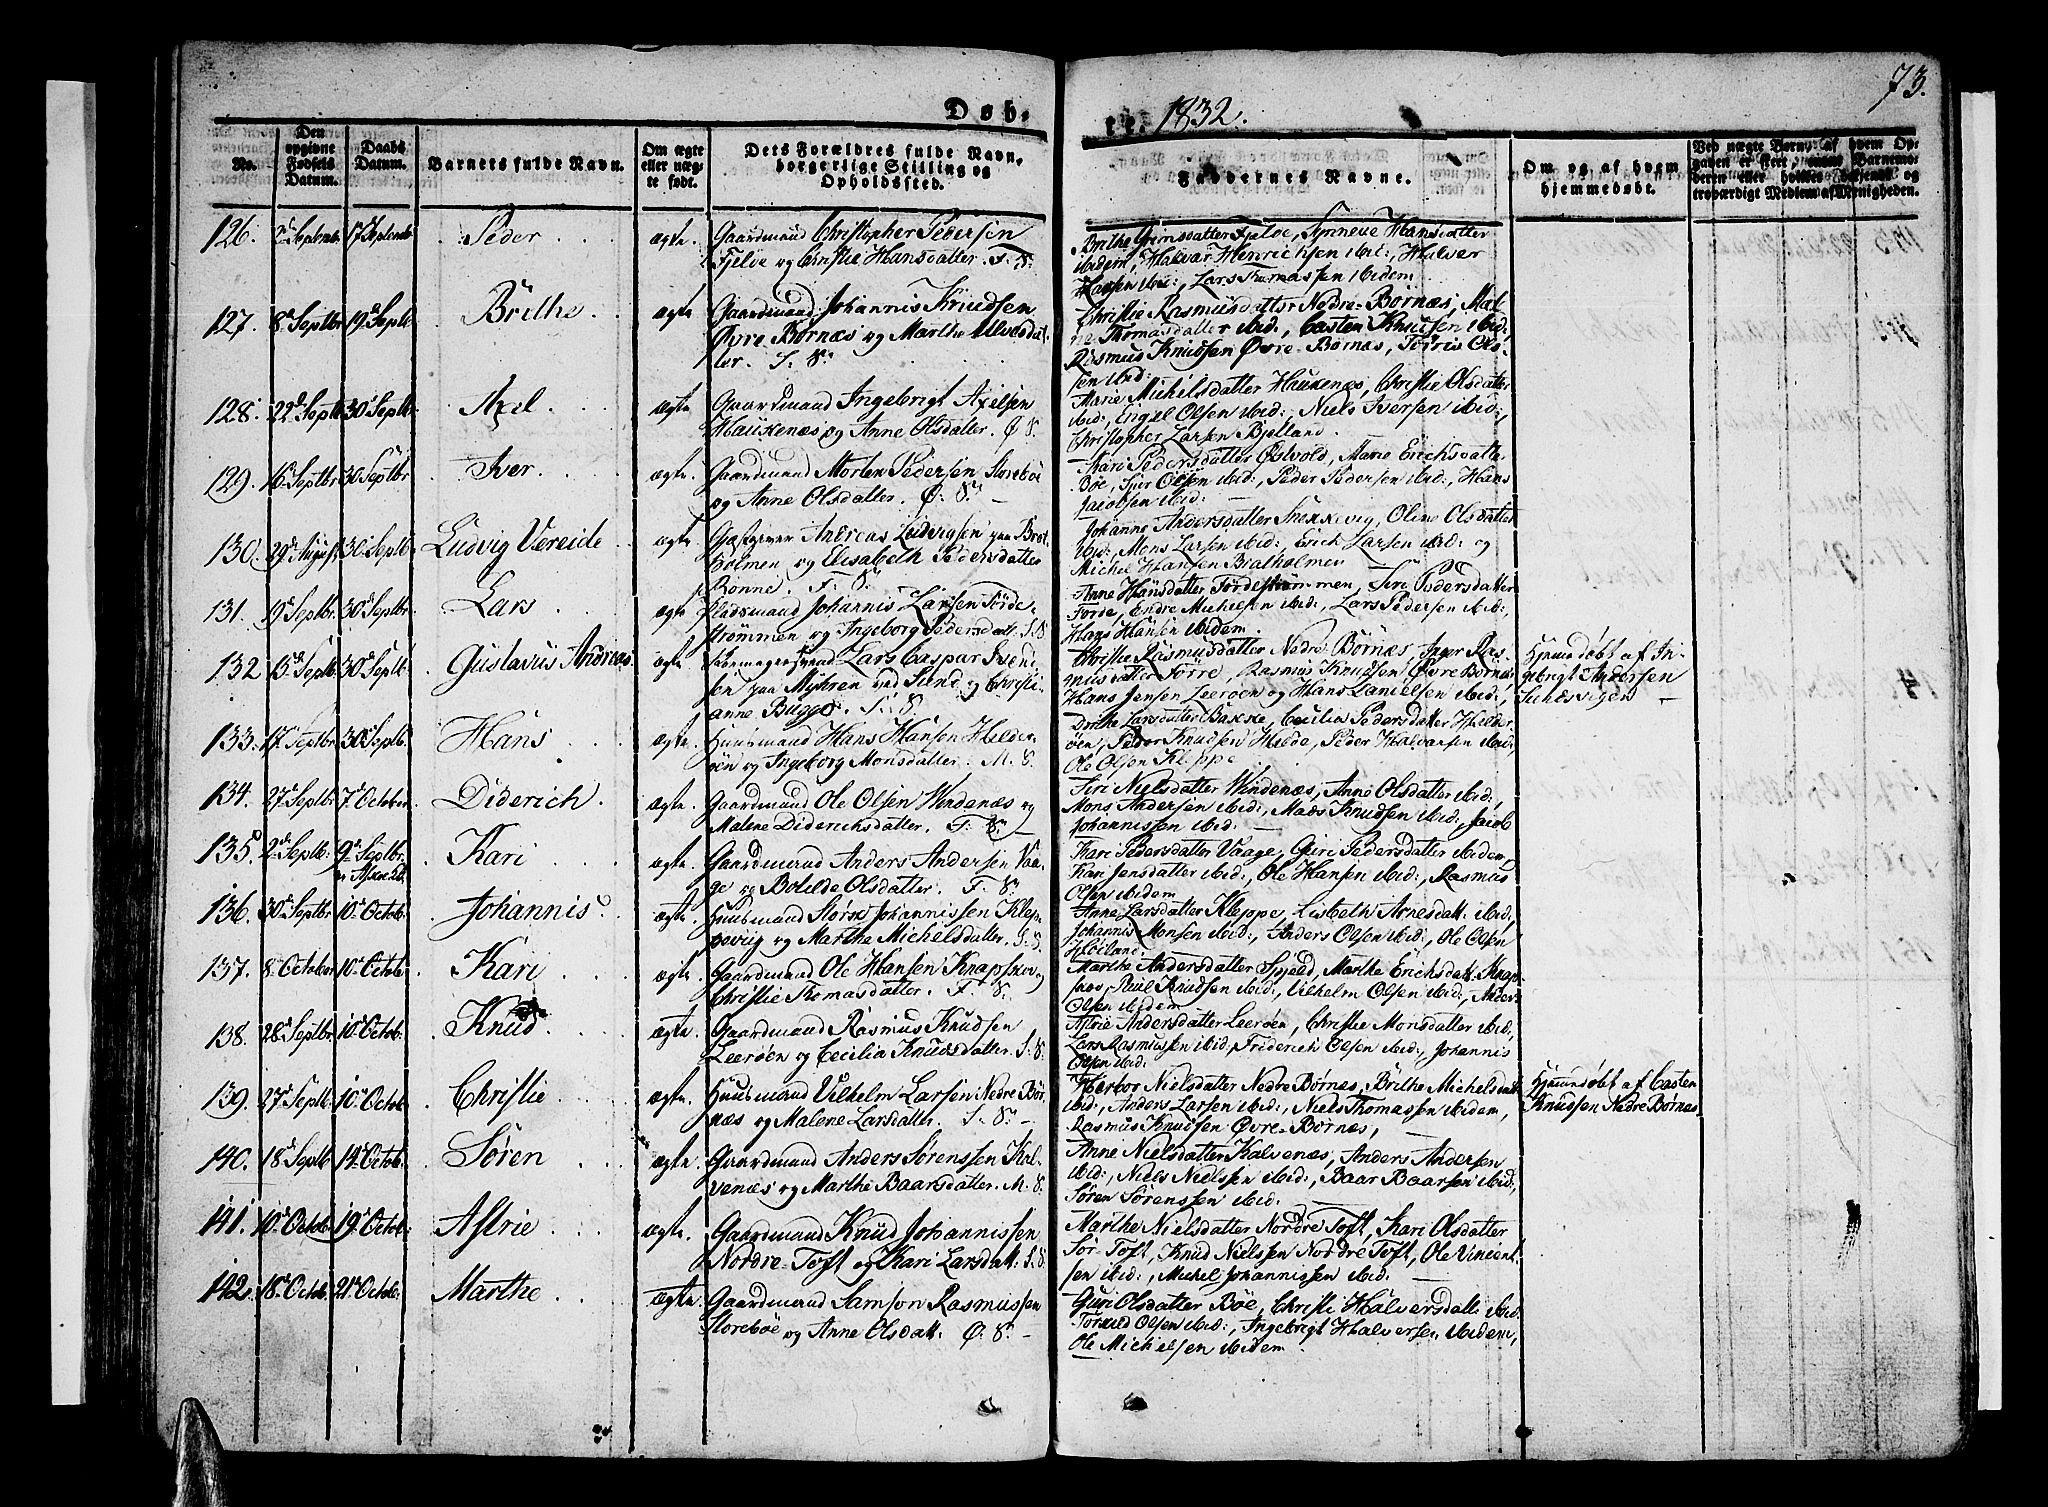 73.
Døb-
te. 1832.
No.
Den opgivne Fødsels Datum.
Daabs Datum.
Barnets fulde Navn.
Om ægte eller uægte født.
Dets Forældres fulde Navn, borgerlige Stilling og Opholdssted.
Faddernes Navne.
Om og af hvem hjemmedøbt.
Ved uægte Børn, af hvem Opgaven er skeet, enten Barnemoderen eller hvilket bekjendt og troværdigt Medlem af Menigheden.
126. 2d Septemb. 17d Septemb. Peder ægte. Gaardmand Christopher Pedersen
Fjelve og Christie Hansdatter. F. S.
Brithe Grimsdatter Fjelve, Synneve Hansdatter
ibidem, Halvar Henrichsen ibid:, Halver
Hansen ibid:, Lars Thomassen ibidem
127. 8d Septbr 19d Septb Brithe ægte Gaardmand Johannis Knudsen
Øvre Børnæs og Marthe Ulvesdat-
ter. S. S:
Christie Rasmusdatter Nedre-Børnæs, Male-
ne Thomasdatter ibid:, Casten Knudsen ibid:
Rasmus Knudsen Øvre-Børnæs, Torris Ols-
sen ibid:
128. 22d Septb 30d Septbr Axel ægte Gaardmand Ingebrigt Axelsen
Haukenæs og Anne Olsdatter. Ø S.
Marie Michelsdatter Haukenæs, Christie Olsdatter
ibid:, Engel Olsen ibid:, Niels Iversen ibid:,
Christopher Larsen Bjelland.
129. 16d Septbr 30 Septbr Iver ægte Gaardmand Morten Pedersen Storebøe
og Anne Olsdatter. Ø. S.
Kari Pedersdatter Østvold, Marie Erichsdatter
Bøe, Siur Olsen ibid:, Peder Pedersen ibid:, Hans
Jacobsen ibid:
130. 29d August 30 Septb. Ludvig Vereide ægte. Gæstgiver Andreas Ludvigsen paa Brat-
holmen og Elisabeth Pedersdatter
Rønne. F. S.
Johanne Andersdatter Snekkevig, Oline Olsdatter
ibid:, Mons Larsen ibid:, Erich Larsen ibid: og
Michel Hansen Bratholmen
131. 19d Septbr. 30d Septbr. Lars ægte Pladsmand Johannis Larsen Førde-
strømmen og Ingeborg Pedersdatt. S. S
Anne Hansdatter Førdestrømmen, Siri Pedersdatter
Førde, Endre Michelsen ibid:, Lars Pedersen ibid:,
Hans Hansen ibidem
132 15d Septb. 30d Septb Gustavus Andreas ægte Skoemagersvend Lars Caspar Svend-
sen paa Myhren ved Sund og Christi-
anne Bugge. S. S
Christie Rasmusdatter Nedre Børnæs, Inger Ras-
musdatter Førre, Rasmus Knudsen Øvre Børnæs
Hans Jensen Leerøen og Hans Danielsen ibid:,
Hjemmedøbt af In-
gebrigt Andersen
133. 17d Septbr 30d Septb. Hans ægte Huusmand Hans Hansen Hilder-
øen og Ingeborg Monsdatter. M. S.
Larsdatter Bakke, Cecilia Pedersdatter Hilder
øen, Peder Knudsen Hilde, Peder Halvarsen ibid:
Ole Olsen Kleppe
134. 27d Septbr. 7d October Diderich. ægte. Gaardmand Ole Olsen Windenæs og
Malene Diderichsdatter. F. S.
Siri Nielsdatter Windenæs, Anne Olsdatter ibid:,
Mons Andersen ibid:, Mads Knudsen ibid:, Jacob
Johannissen ibid:
135. 2d Septb: 9d Septbr. Kari ægte Gaardmand Anders Andersen Vaa-
ge og Botilde Olsdatter. F. S.
Kari Pedersdatter Vaage, Guri Pedersdatter ibidem,
Kari Jensdatter ibid:, Ole Hansen ibid:, Rasmus
Olsen ibidem
136. 30d Septbr 10d Octob. Johannis. ægte Huusmand Størk Johannissen Klep-
pevig og Marthe Michelsdatter. S. S.
Anne Larsdatter Kleppe, Lisbeth Arnesdatt: ibid:,
Johannis Monsen ibid:, Anders Olsen ibid:, Ole Olsen
Høiland.
137. 8d October 10d Octob. Kari ægte. Gaardmand Ole Hansen Knapskov og
Christie Thomasdatter. F. S.
Marthe Andersdatter Spjeld, Marthe Erichsdatt: Knap-
skov, Paul Knudsen ibid:, Vilhelm Olsen ibid:, Anders
Olsen ibidem
138. 28d Septbr. 10d Octob. Knud ægte. Gaardmand Rasmus Knudsen
Leerøen og Cecilia Knudsdatter. S. S.
Astrie Andersdatter Leerøen, Christie Monsdatter ibid:,
Lars Rasmussen ibid:, Friderich Olsen ibid:, Johannis
Olsen ibid:
139. 27d Septb. 10d Octob. Christie ægte. Huusmand Vilhelm Larsen Nedre Bør-
næs og Malene Larsdatter. S. S.
Herbor Nielsdatter Nedre Børnæs, Brithe Michelsdatt
ibid:, Anders Larsen ibid:, Niels Thomassen ibidem,
Rasmus Knudsen Øvre-Børnæs,
Hjemmedøbt af Casten
Knudsen Nedre Børnæs
140. 18d Septb 14d Octob. Søren ægte. Gaardmand Anders Sørenssen Kal-
venæs og Marthe Baarsdatter. M. S.
Anne Nielsdatter Kalvenæs, Anders Andersen
ibid:, Niels Nielssen ibid:, Baar Baarsen ibid:,
Søren Sørenssen ibid.
141. 10d Octob. 19d Octob: Astrie ægte. Gaardmand Knud Johannissen
Nordre-Toft og Kari Larsdatt: S. S.
Marthe Nielsdatter Nordre Toft, Kari Olsdatter
Sør-Toft, Knud Nielssen Nordre Toft, Ole Vincent-
sen ibid:, Michel Johannissen ibid.
142. 18d Octob. 21d Octob. Marthe ægte. Gaardmand Samson Rasmussen
Storebøe og Anne Olsdatt: Ø. S.
Guri Olsdatter Bøe, Christi Halversdatt: ibid.
Olsen ibid:, Ingebrigt Halversen ibidem,
Ole Michelsen ibidem.